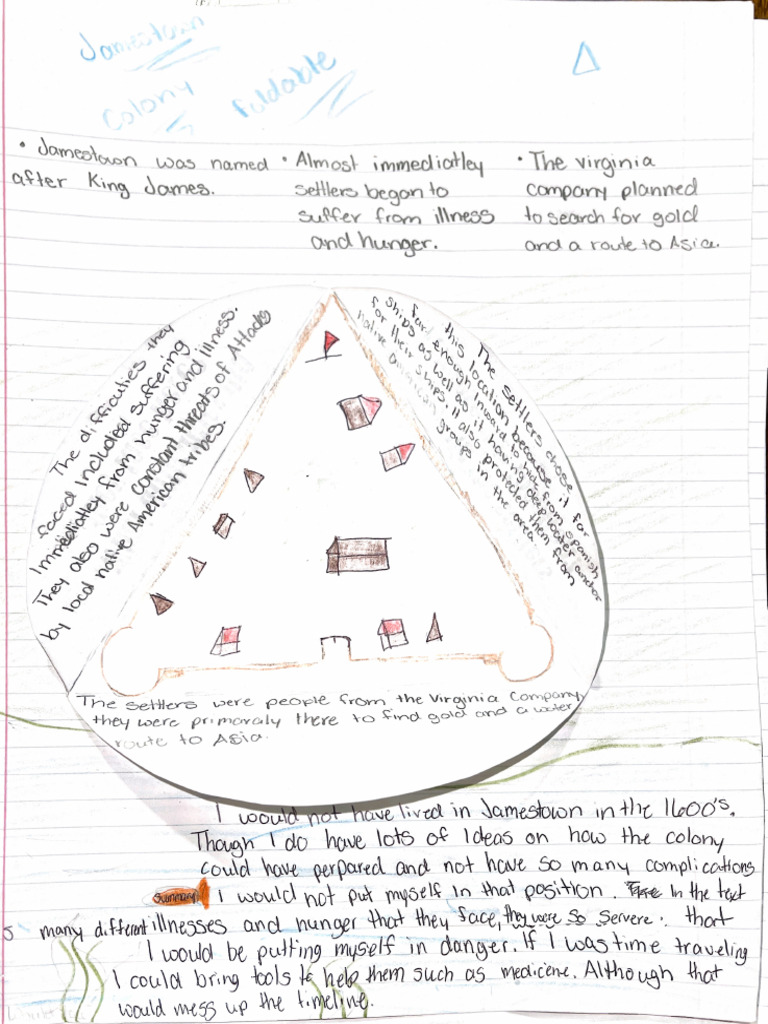 Jamestown
Colony
foldable
• Jamestown was named
after King James.
• Almost immediatley
settlers began to
suffer from illness
and hunger.
• The virginia
company planned
to search for gold
and a route to Asia.
The difficulties they
faced included suffering
Immediatley from hunger and illness.
They also were constant threats of Attacks
by local native American tribes.
The settlers chose
this location because it for
far enough inward to hide from spanish
ships as well as it having deep water anchor
for their ships. It also protected them from
native american groups in the area.
The settlers were people from the Virginia Company,
they were primoraly there to find gold and a water
route to Asia.
I would not have lived in Jamestown in the 1600's.
Though I do have lots of Ideas on how the colony
could have perpared and not have so many complications
summary I would not put myself in that position. In the text
many different illnesses and hunger that they face, they were so servere that
I would be putting myself in danger. If I was time traveling
I could bring tools to help them such as medicene. Although that
would mess up the timeline.